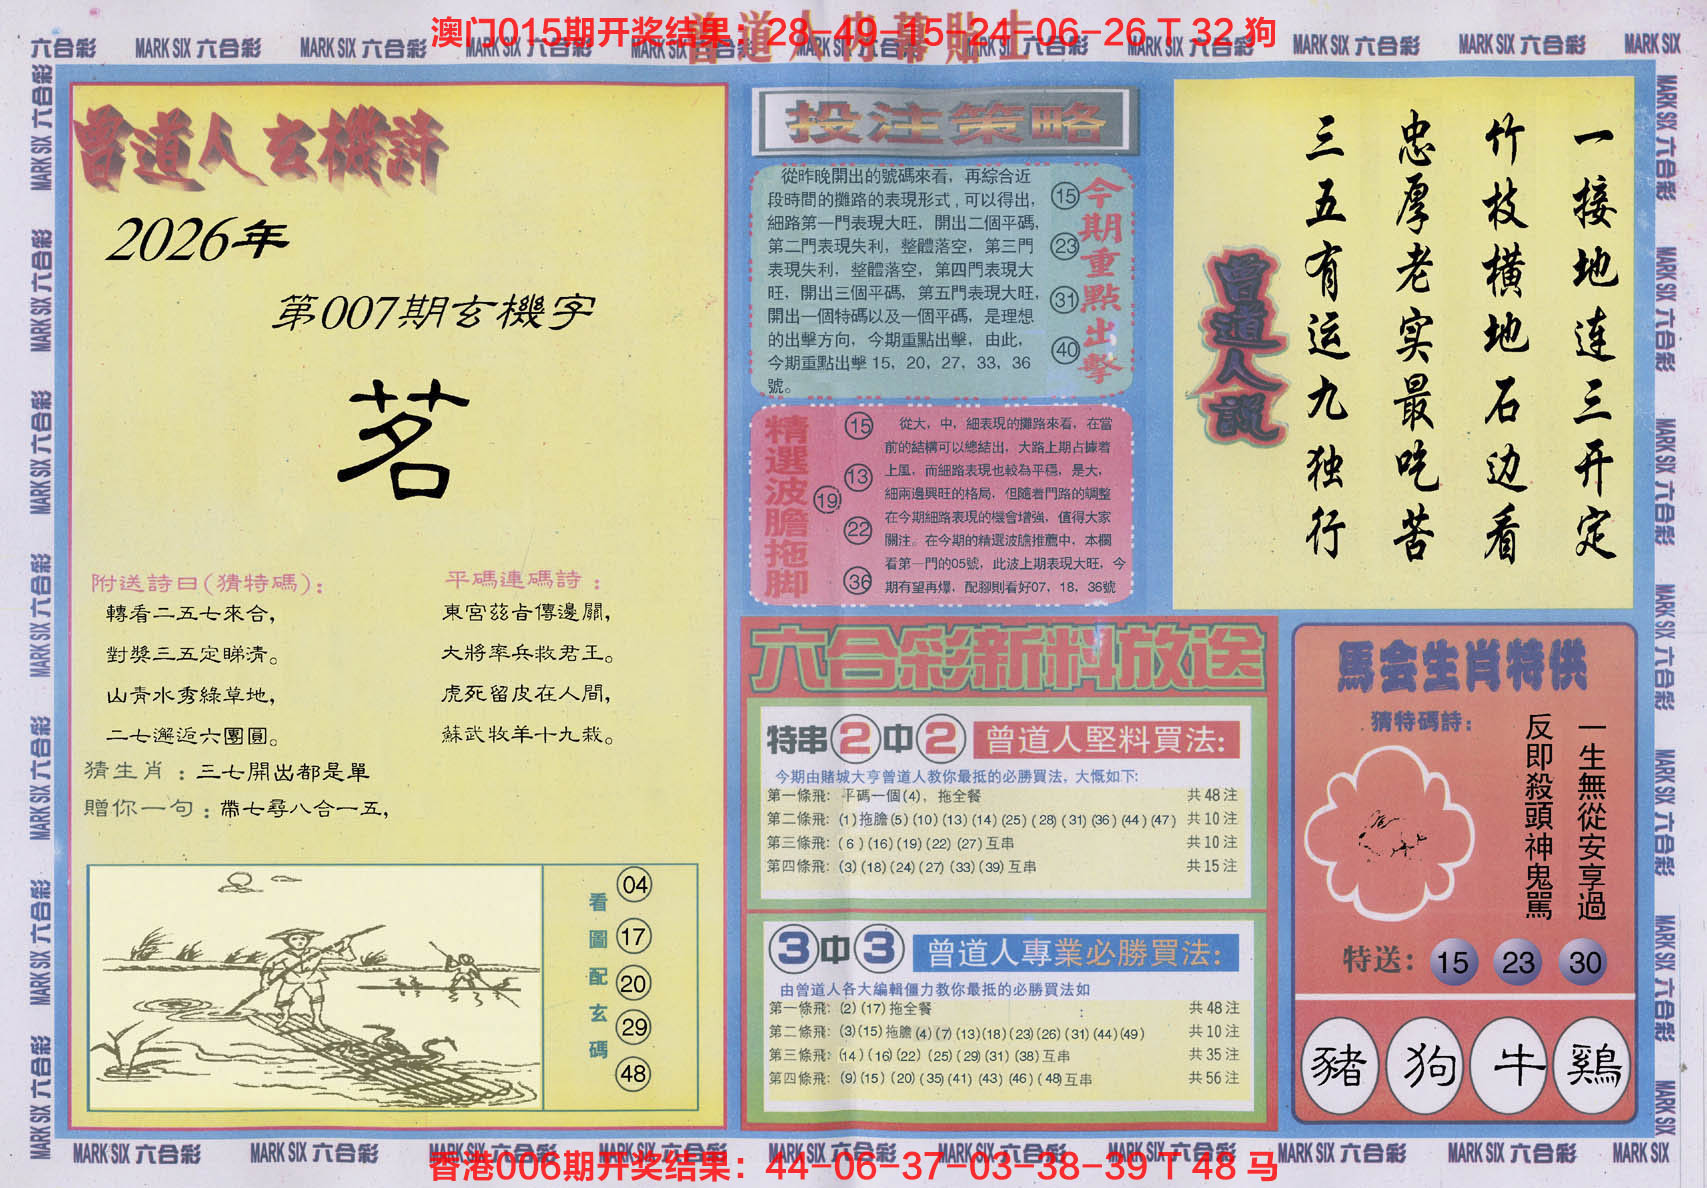 澳门015期开奖结果：28-49-15-24-06-26 T 32 狗
曾道人内幕貼士
六合彩 MARK SIX 六合彩 MARK SIX 六合彩 MARK SIX 六合彩 MARK SIX 六合彩 MARK SIX 六合彩 MARK SIX
曾道人玄機詩
2026年
第007期玄機字
茗
附送詩曰(猜特碼)：
轉看二五七來合，
對獎三五定睇清。
山青水秀綠草地，
二七邂逅六團圓。
平碼連碼詩：
東宮茲旨傳邊關，
大將率兵救君王。
虎死留皮在人間，
蘇武牧羊十九栽。
猜生肖：三七開出都是單
贈你一句：帶七尋八合一五，
看圖配玄碼
04
17
20
29
48
投注策略
從昨晚開出的號碼來看，再綜合近
段時間的攤路的表現形式，可以得出，
細路第一門表現大旺，開出二個平碼，
第二門表現失利，整體落空，第三門
表現失利，整體落空，第四門表現大
旺，開出三個平碼，第五門表現大旺，
開出一個特碼以及一個平碼，是理想
的出擊方向，今期重點出擊，由此，
今期重點出擊 15，20，27，33，36
號。
今期重點出擊
15
23
31
40
精選波膽拖脚
15
13
19
22
36
從大，中，細表現的攤路來看，在當
前的結構可以總結出，大路上期占據着
上風，而細路表現也較為平穩，是大，
細兩邊興旺的格局，但隨着門路的調整
在今期細路表現的機會增強，值得大家
關注。在今期的精選波膽推薦中，本欄
看第一門的05號，此波上期表現大旺，今
期有望再爆，配腳則看好07，18，36號
六合彩新料放送
特串2中2 曾道人堅料買法：
今期由賭城大亨曾道人教你最抵的必勝買法，大慨如下：
第一條飛：平碼一個(4)，拖全餐 共48注
第二條飛：(1)拖膽(5)(10)(13)(14)(25)(28)(31)(36)(44)(47) 共10注
第三條飛：(6)(16)(19)(22)(27)互串 共10注
第四條飛：(3)(18)(24)(27)(33)(39)互串 共15注
3中3 曾道人專業必勝買法：
由曾道人各大編輯僵力教你最抵的必勝買法如
第一條飛：(2)(17)拖全餐 共48注
第二條飛：(3)(15)拖膽(4)(7)(13)(18)(23)(26)(31)(44)(49) 共10注
第三條飛：(14)(16)(22)(25)(29)(31)(38)互串 共35注
第四條飛：(9)(15)(20)(35)(41)(43)(46)(48)互串 共56注
一接地连三开定
竹枝横地石边看
忠厚老实最吃苦
三五有运九独行
曾道人說
馬会生肖特供
猜特碼詩：
一生無從安享過
反即殺頭神鬼罵
特送：15 23 30
豬 狗 牛 鷄
MARK SIX 六合彩 MARK SIX 六合彩 MARK SIX 六合彩 MARK SIX 六合彩 MARK SIX 六合彩 MARK SIX 六合彩 MARK SIX 六合彩 MARK SIX 六合彩 MARK SIX 六合彩 MARK SIX
香港006期开奖结果：44-06-37-03-38-39 T 48 马